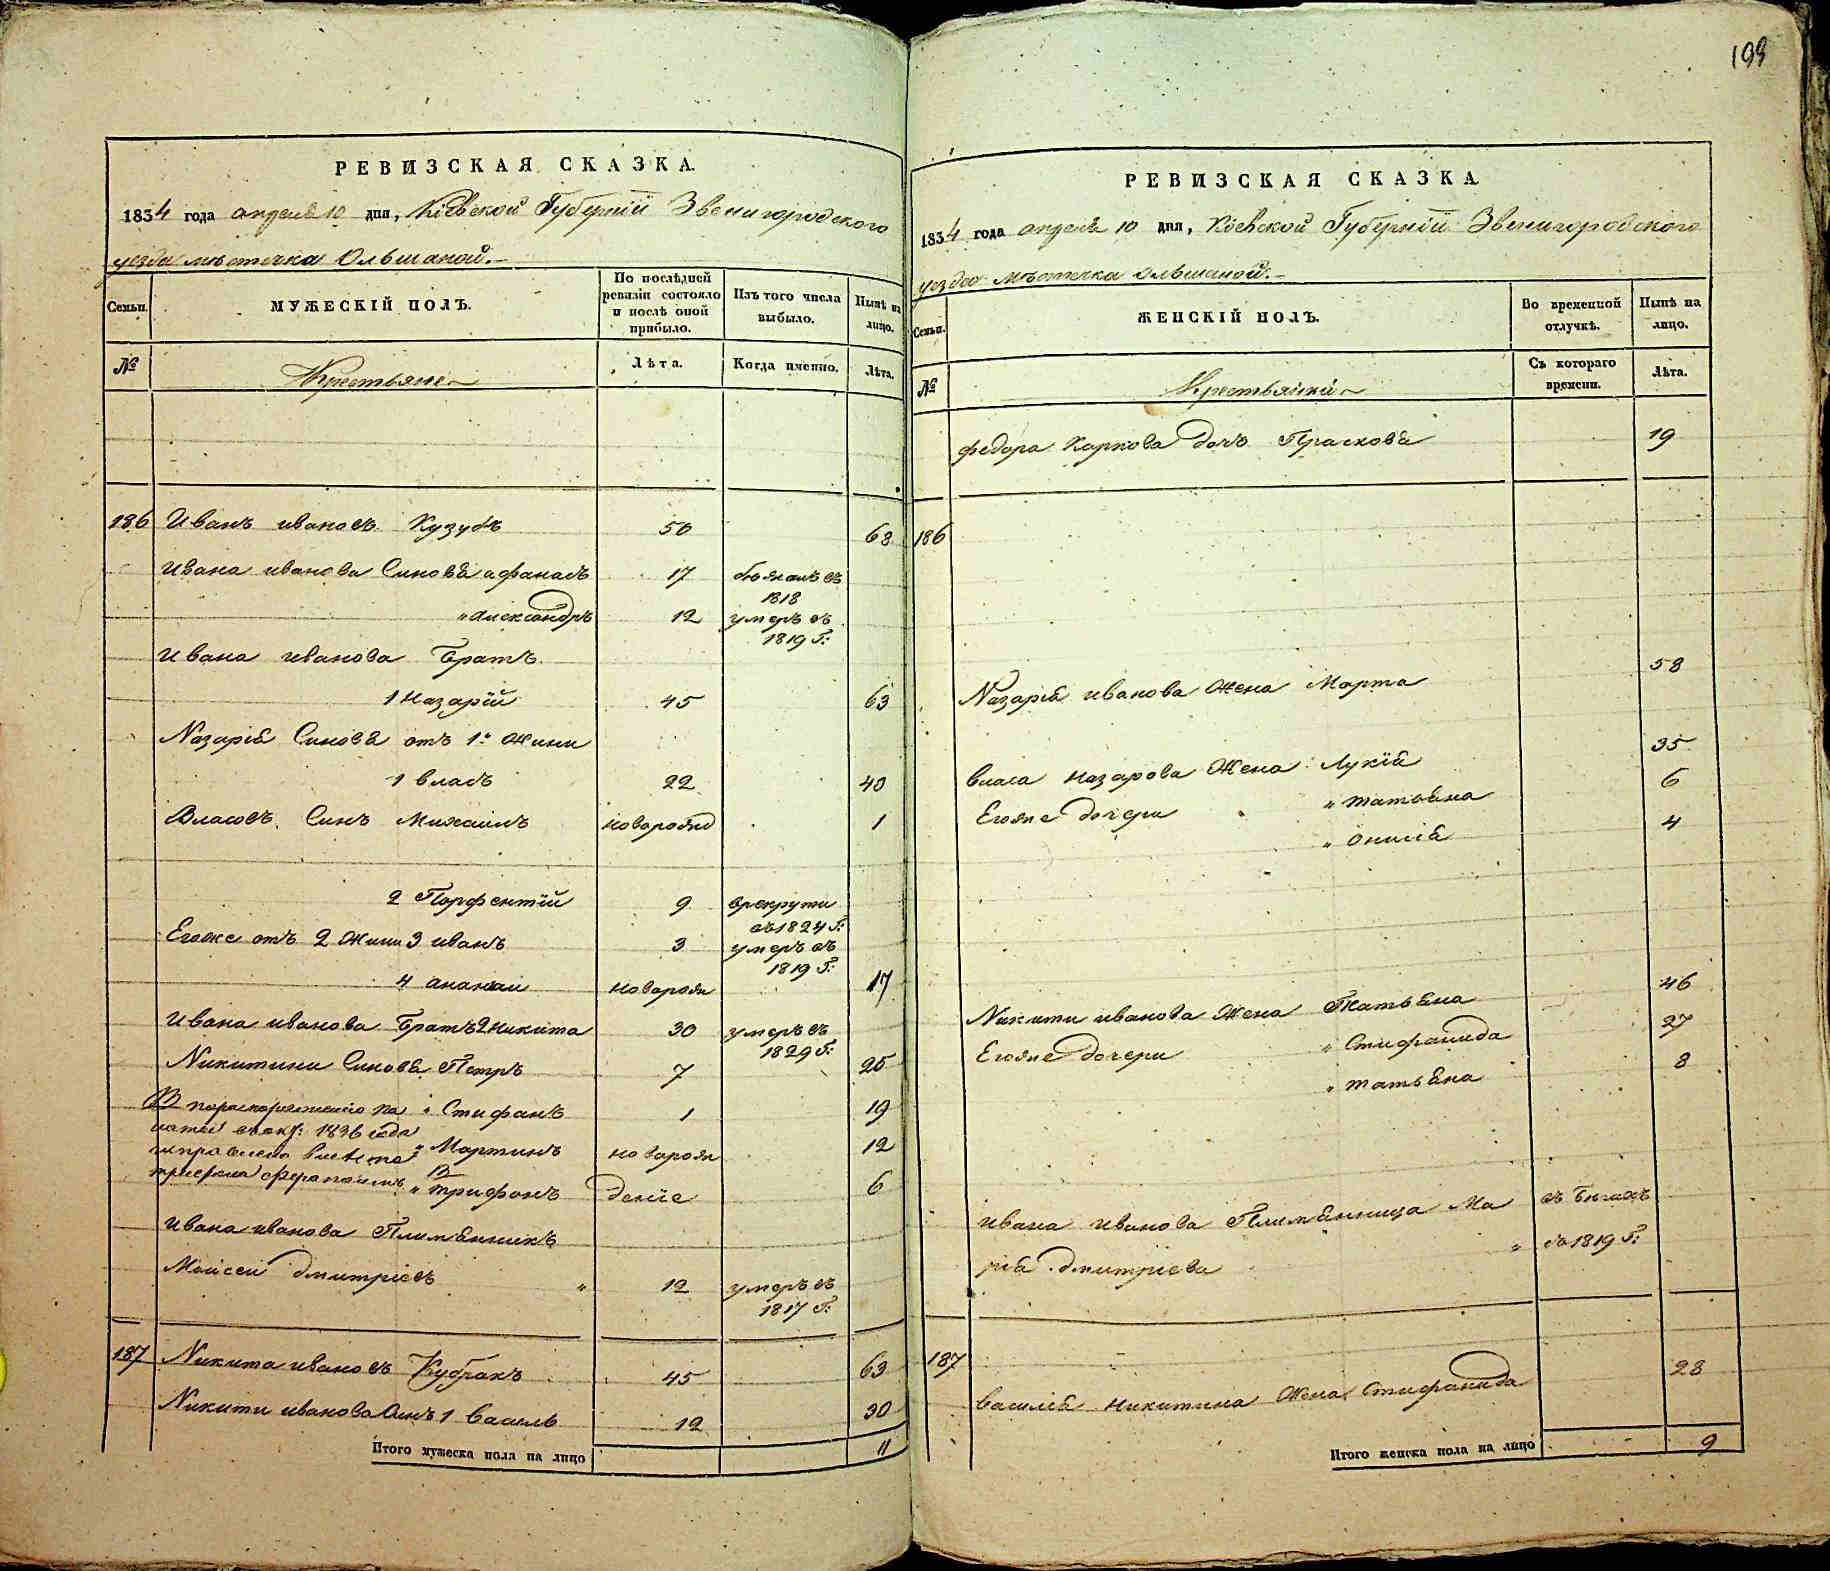 199
РЕВИЗСКАЯ СКАЗКА.
1834 года апреля 10 дня, Кіевской Губерніи Звенигородского
уезда мѣстечка Ольшаной.
Семьи.
МУЖЕСКІЙ ПОЛЪ.
По послѣдней ревизіи состояло и послѣ оной прибыло.
Изъ того числа выбыло.
Нынѣ на лицо.
№
Крестьяне
Лѣта.
Когда именно.
Лѣта.
186 Иванъ ивановъ Кузубъ 50 68
Ивана иванова Синовѣ афанасъ 17 бежалъ въ
1818
" Александръ 12 умеръ въ
1819 Г:
Ивана иванова Братъ
1 Назарій 45 63
Назарія Синовѣ отъ 1й Жини
1 власъ 22 40
Власовъ Синъ Михаилъ новорожд 1
2 Парфентій 9 врекрути
въ 1824 Г:
Егоже отъ 2 Жини 3 иванъ 3 умеръ въ
1819 Г:
4 ананіи новорож 17
Ивана иванова Братъ 2 никита 30 умеръ въ
1829 Г:
Никитини Синовѣ Петръ 7 25
" Стифанъ 1 19
1836 года
" Мартинъ новорож 12
" трифонъ деніе 6
Ивана иванова Племѣнникъ
Моисей дмитріевъ " 12 умеръ въ
1817 Г:
187 Никита ивановъ Кубракъ 45 63
Никити иванова Синъ 1 Василь 12 30
Итого мужеска пола на лицо 11
РЕВИЗСКАЯ СКАЗКА.
1834 года апреля 10 дня, Кіевской Губерніи Звенигородского
уезда мѣстечка Ольшаной.
Семьи.
ЖЕНСКІЙ ПОЛЪ.
Во временной отлучкѣ.
Нынѣ на лицо.
№
Крестьянки
Съ котораго времени.
Лѣта.
федора Карпова дочъ Прасковѣя 19
186
Назарія иванова Жена Марта 58
власа назарова Жена Лукія 35
Егоже дочери " татьяна 6
" Онисія 4
Никити иванова Жена Татьяна 46
Егоже дочери " Стифанида 27
" татьяна 8
ивана иванова Племѣнница Ма въ бегахъ
рія дмитріева " съ 1819 Г:
187
василія никитина Жена Стифанида 28
Итого женска пола на лицо 9